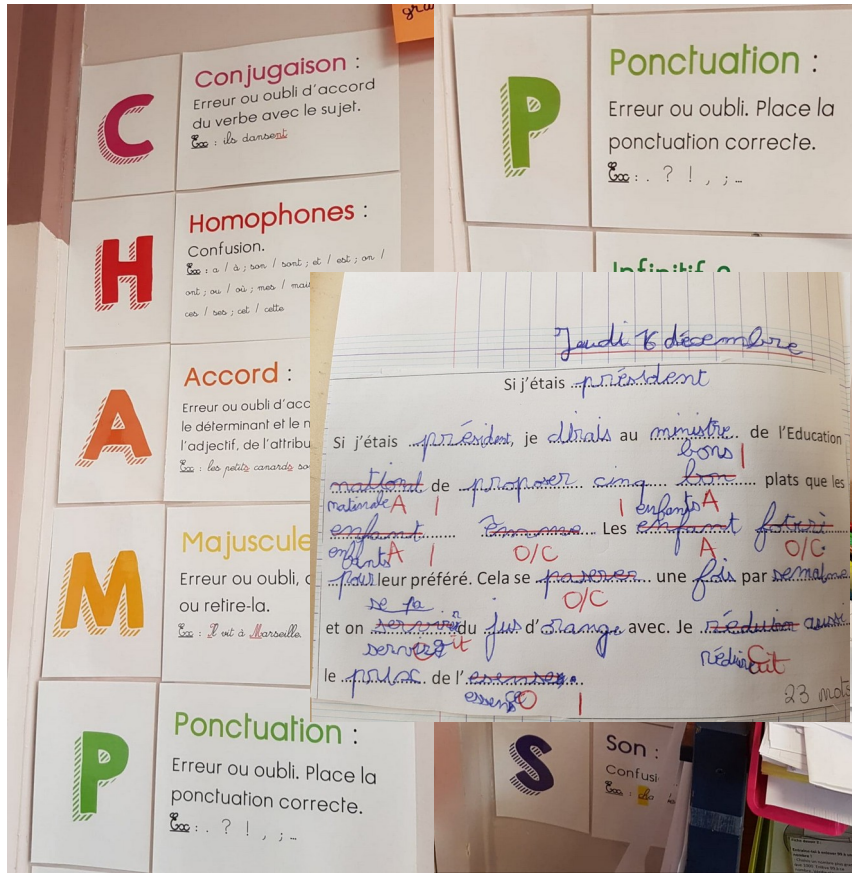 gra
C
Conjugaison :
Erreur ou oubli d'accord
du verbe avec le sujet.
Ex : ils dansent
H
Homophones :
Confusion.
Ex : a / à ; son / sont ; et / est ; on /
ont ; ou / où ; mes / mai
ces / ses ; cet / cette
A
Accord :
Erreur ou oubli d'acc
le déterminant et le n
l'adjectif, de l'attribu
Ex : les petits canards so
M
Majuscule
Erreur ou oubli,
ou retire-la.
Ex : Il vit à Marseille.
P
Ponctuation :
Erreur ou oubli. Place la
ponctuation correcte.
Ex : . ? ! , ; …
P
Ponctuation :
Erreur ou oubli. Place la
ponctuation correcte.
Ex : . ? ! , ; …
Jeudi 16 décembre
Si j'étais président
Si j'étais président, je dirais au ministre de l'Education
bons |
national de proposer cinq bon plats que les
nationale A | | enfants A
enfant Les enfant
enfants A | O/C A O/C
pour leur préféré. Cela se passer une fois par semaine
se pa O/C
et on servir du jus d'orange avec. Je réduire aussi
servirait réduirait
le prix de l'
essence O |
23 mots
S
Son :
Confusi
Ex :